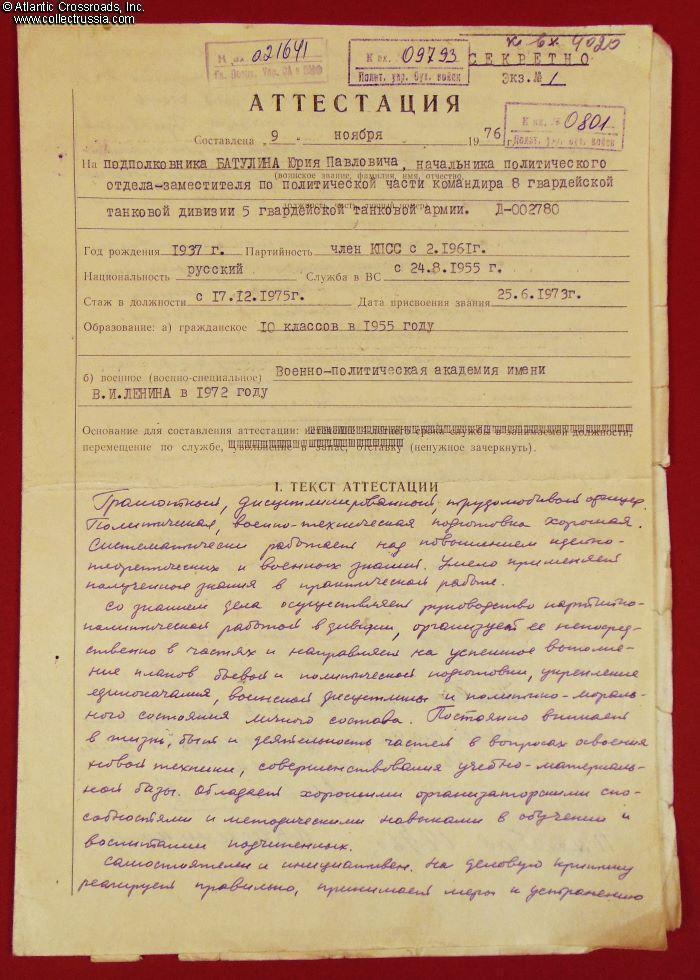 © Atlantic Crossroads, Inc.
www.collectrussia.com
К вх 4020
Н вх. 021641
Гл. Полит. Упр. СА и ВМФ
К вх. 09793
Полит. упр. бух. войск
СЕКРЕТНО
Экз.№ 1
К вх. № 0801
Полит. упр. сух. войск
АТТЕСТАЦИЯ
Составлена 9 ноября 1976 г.
На подполковника БАТУЛИНА Юрия Павловича, начальника политического
(воинское звание, фамилия, имя, отчество,
отдела-заместителя по политической части командира 8 гвардейской
должность, часть, личный номер)
танковой дивизии 5 гвардейской танковой армии. Д-002780
Год рождения 1937 г. Партийность член КПСС с 2.1961г.
Национальность русский Служба в ВС с 24.8.1955 г.
Стаж в должности с 17.12.1975г. Дата присвоения звания 25.6.1973г.
Образование: а) гражданское 10 классов в 1955 году
б) военное (военно-специальное) Военно-политическая академия имени
В.И.ЛЕНИНА в 1972 году
Основание для составления аттестации: истечение срока службы в занимаемой должности,
перемещение по службе, увольнение в запас, отставку (ненужное зачеркнуть).
I. ТЕКСТ АТТЕСТАЦИИ
Грамотный, дисциплинированный, трудолюбивый офицер.
Политическая, военно-техническая подготовка хорошая.
Систематически работает над повышением идейно-
теоретических и военных знаний. Умело применяет
полученные знания в практической работе.
Со знанием дела осуществляет руководство партийно-
политической работой в дивизии, организует ее непосред-
ственно в частях и направляет на успешное выполне-
ние планов боевой и политической подготовки, укрепление
единоначалия, воинской дисциплины и политико-мораль-
ного состояния личного состава. Постоянно вникает
в жизнь, быт и деятельность частей в вопросах освоения
новой техники, совершенствования учебно-материаль-
ной базы. Обладает хорошими организаторскими спо-
собностями и методическими навыками в обучении и
воспитании подчиненных.
Самостоятелен и инициативен. На деловую критику
реагирует правильно, принимает меры к устранению